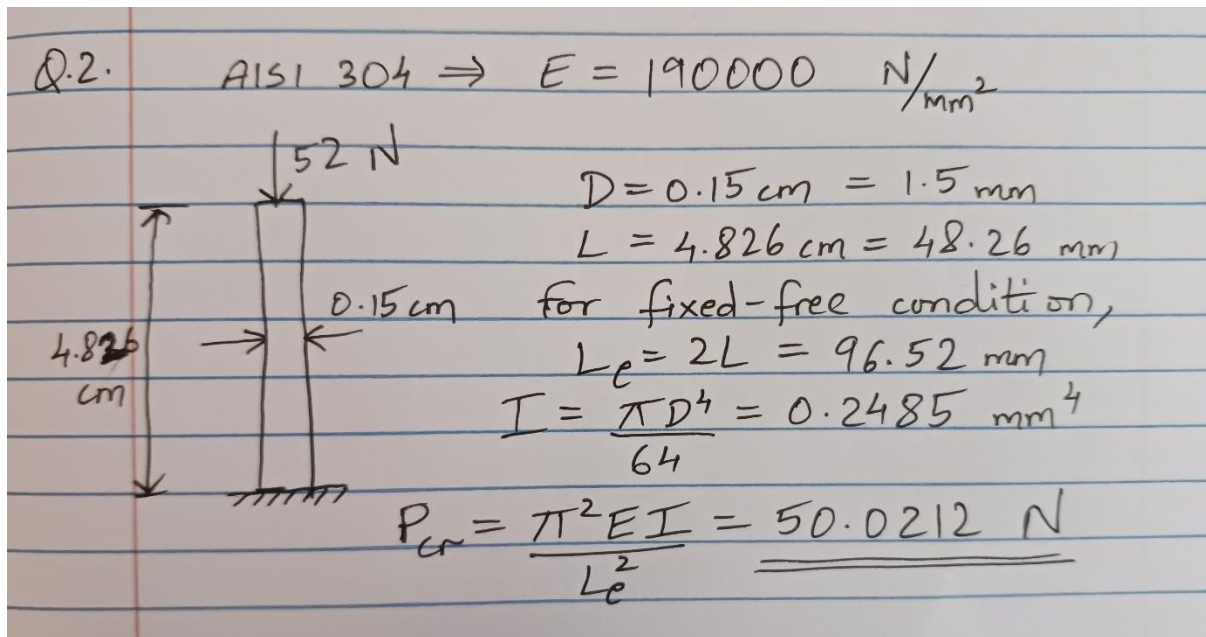 Q.2. AISI 304 ⇒ E = 190000 N/mm²
52 N
D = 0.15 cm = 1.5 mm
L = 4.826 cm = 48.26 mm
0.15 cm for fixed-free condition,
4.826
cm
Le = 2L = 96.52 mm
I = πD⁴/64 = 0.2485 mm⁴
Pcr = π²EI/Le² = 50.0212 N